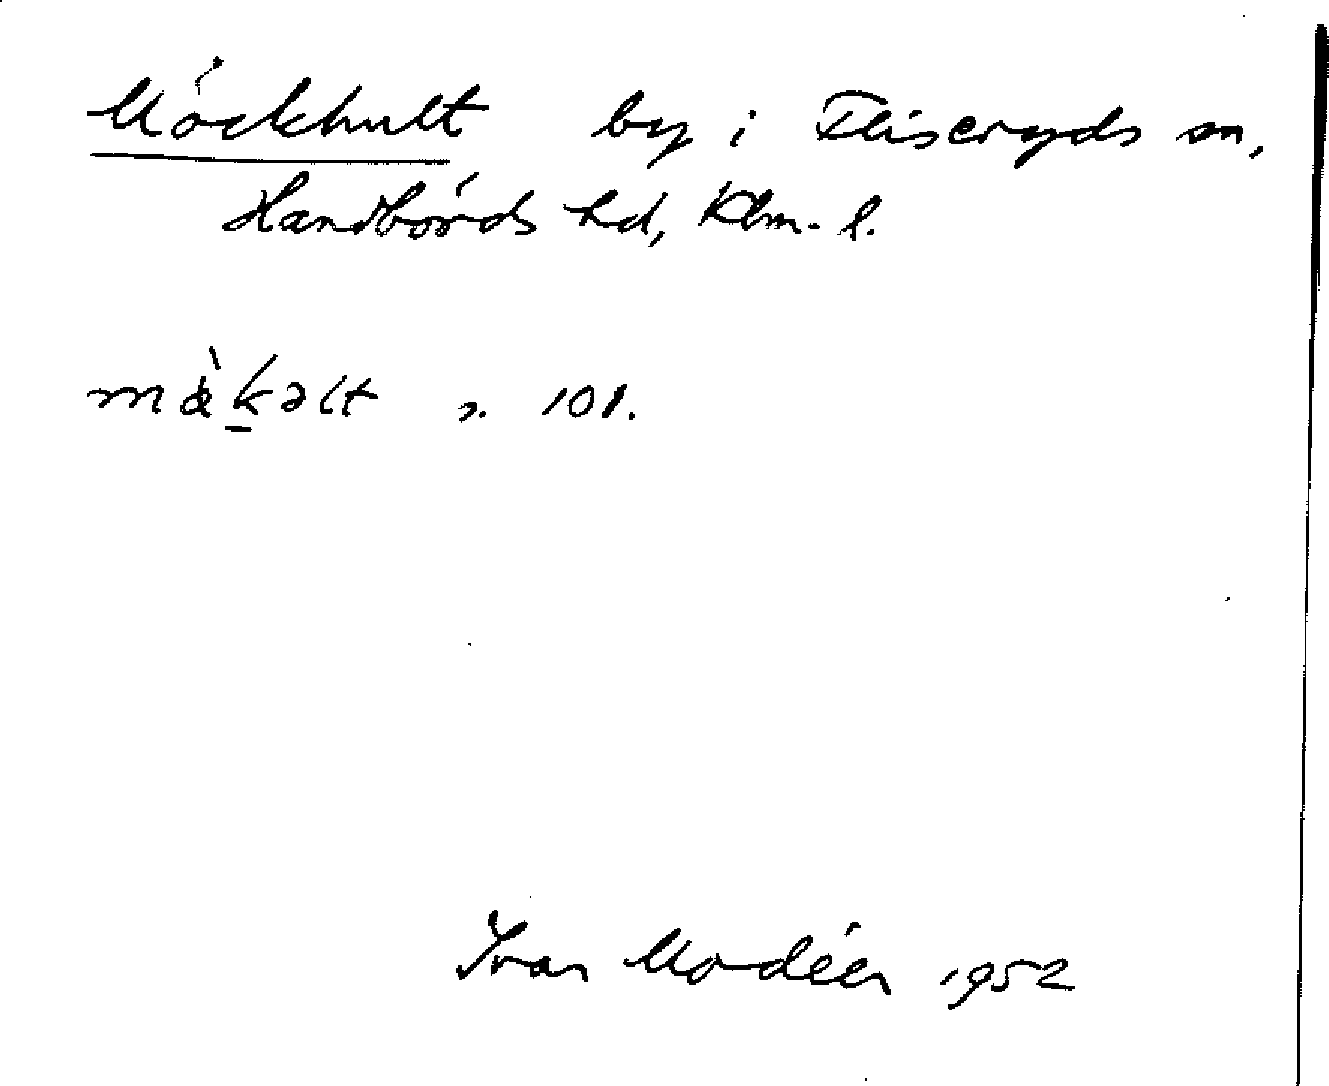 Möckhult by i Fliseryds sn,
Handbörds hd, Klm. l.
mö̀k̲əlt s. 101.
Ivar Modéer 1952